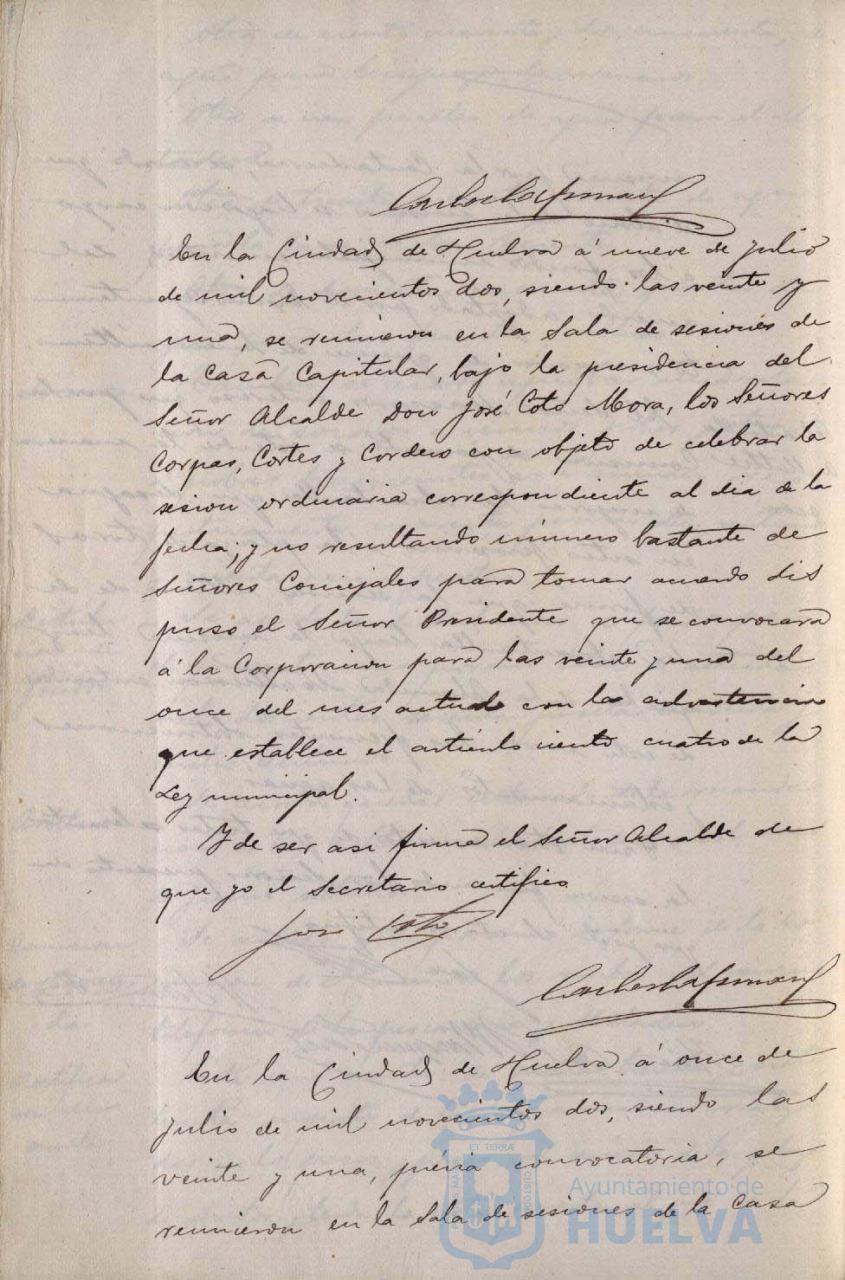 En la Ciudad de Huelva á nueve de julio
de mil novecientos dos, siendo las veinte y
una, se reunieron en la Sala de sesiones de
la Casa Capitular, bajo la presidencia del
Señor Alcalde Don José Coto Mora, los Señores
Corpas, Cortes y Cordero con objeto de celebrar la
sesion ordinaria correspondiente al dia de la
fecha; y no resultando número bastante de
Señores Concejales para tomar acuerdo dis
puso el Señor Presidente que se convocara
á la Corporacion para las veinte y una del
once del mes actual con la advertencia
que establece el artículo ciento cuatro de la
Ley municipal.
Y de ser asi firma el Señor Alcalde de
que yo el Secretario certifico
José Coto
En la Ciudad de Huelva á once de
julio de mil novecientos dos, siendo las
veinte y una, prévia convocatoria, se
reunieron en la Sala de sesiones de la Casa
Ayuntamiento de
HUELVA